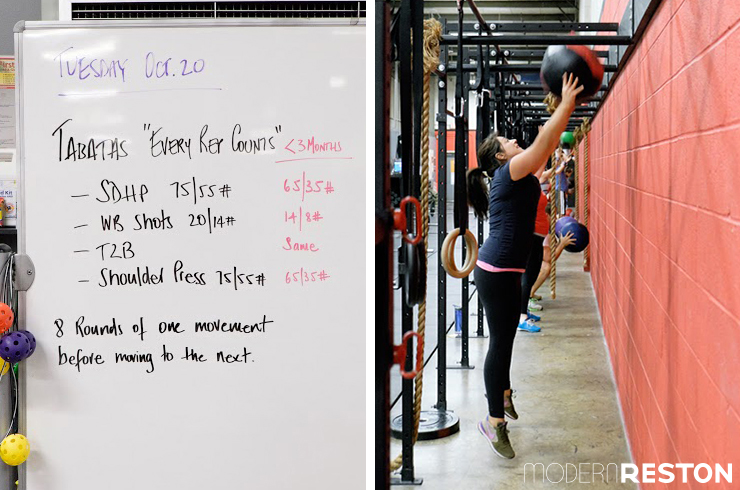 TUESDAY OCT. 20
TABATAS "EVERY REP COUNTS" <3 MONTHS
- SDHP 75/55# 65/35#
- WB Shots 20/14# 14/8#
- T2B Same
- Shoulder Press 75/55# 65/35#
8 Rounds of one movement
before moving to the next.
MODERNRESTON